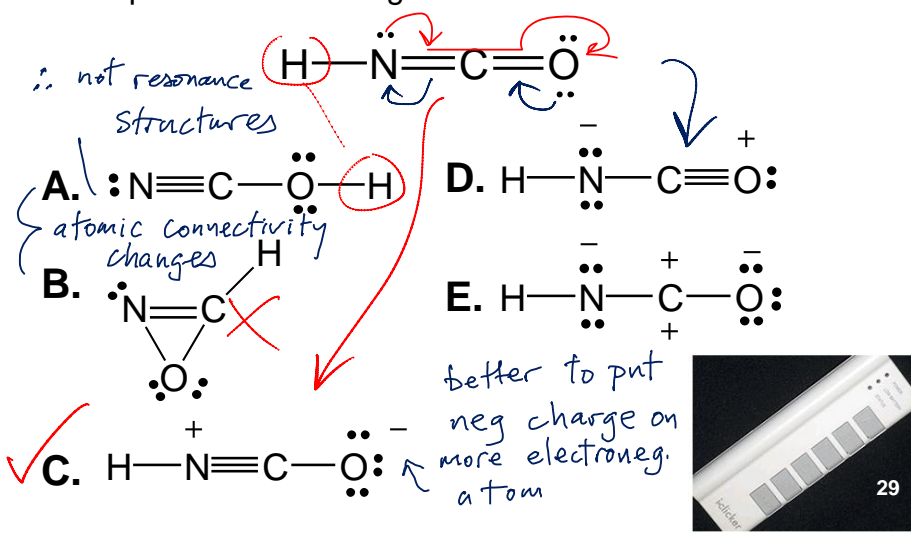 H—N̈=C=Ö:
∴ not resonance
structures
A. :N≡C—Ö—H
atomic connectivity
changes
B. N=C H O
C. H—N≡C—O: + −
D. H—N—C≡O: − +
E. H—N—C—O: − + + −
better to put
neg charge on
more electroneg.
atom
iclicker
29